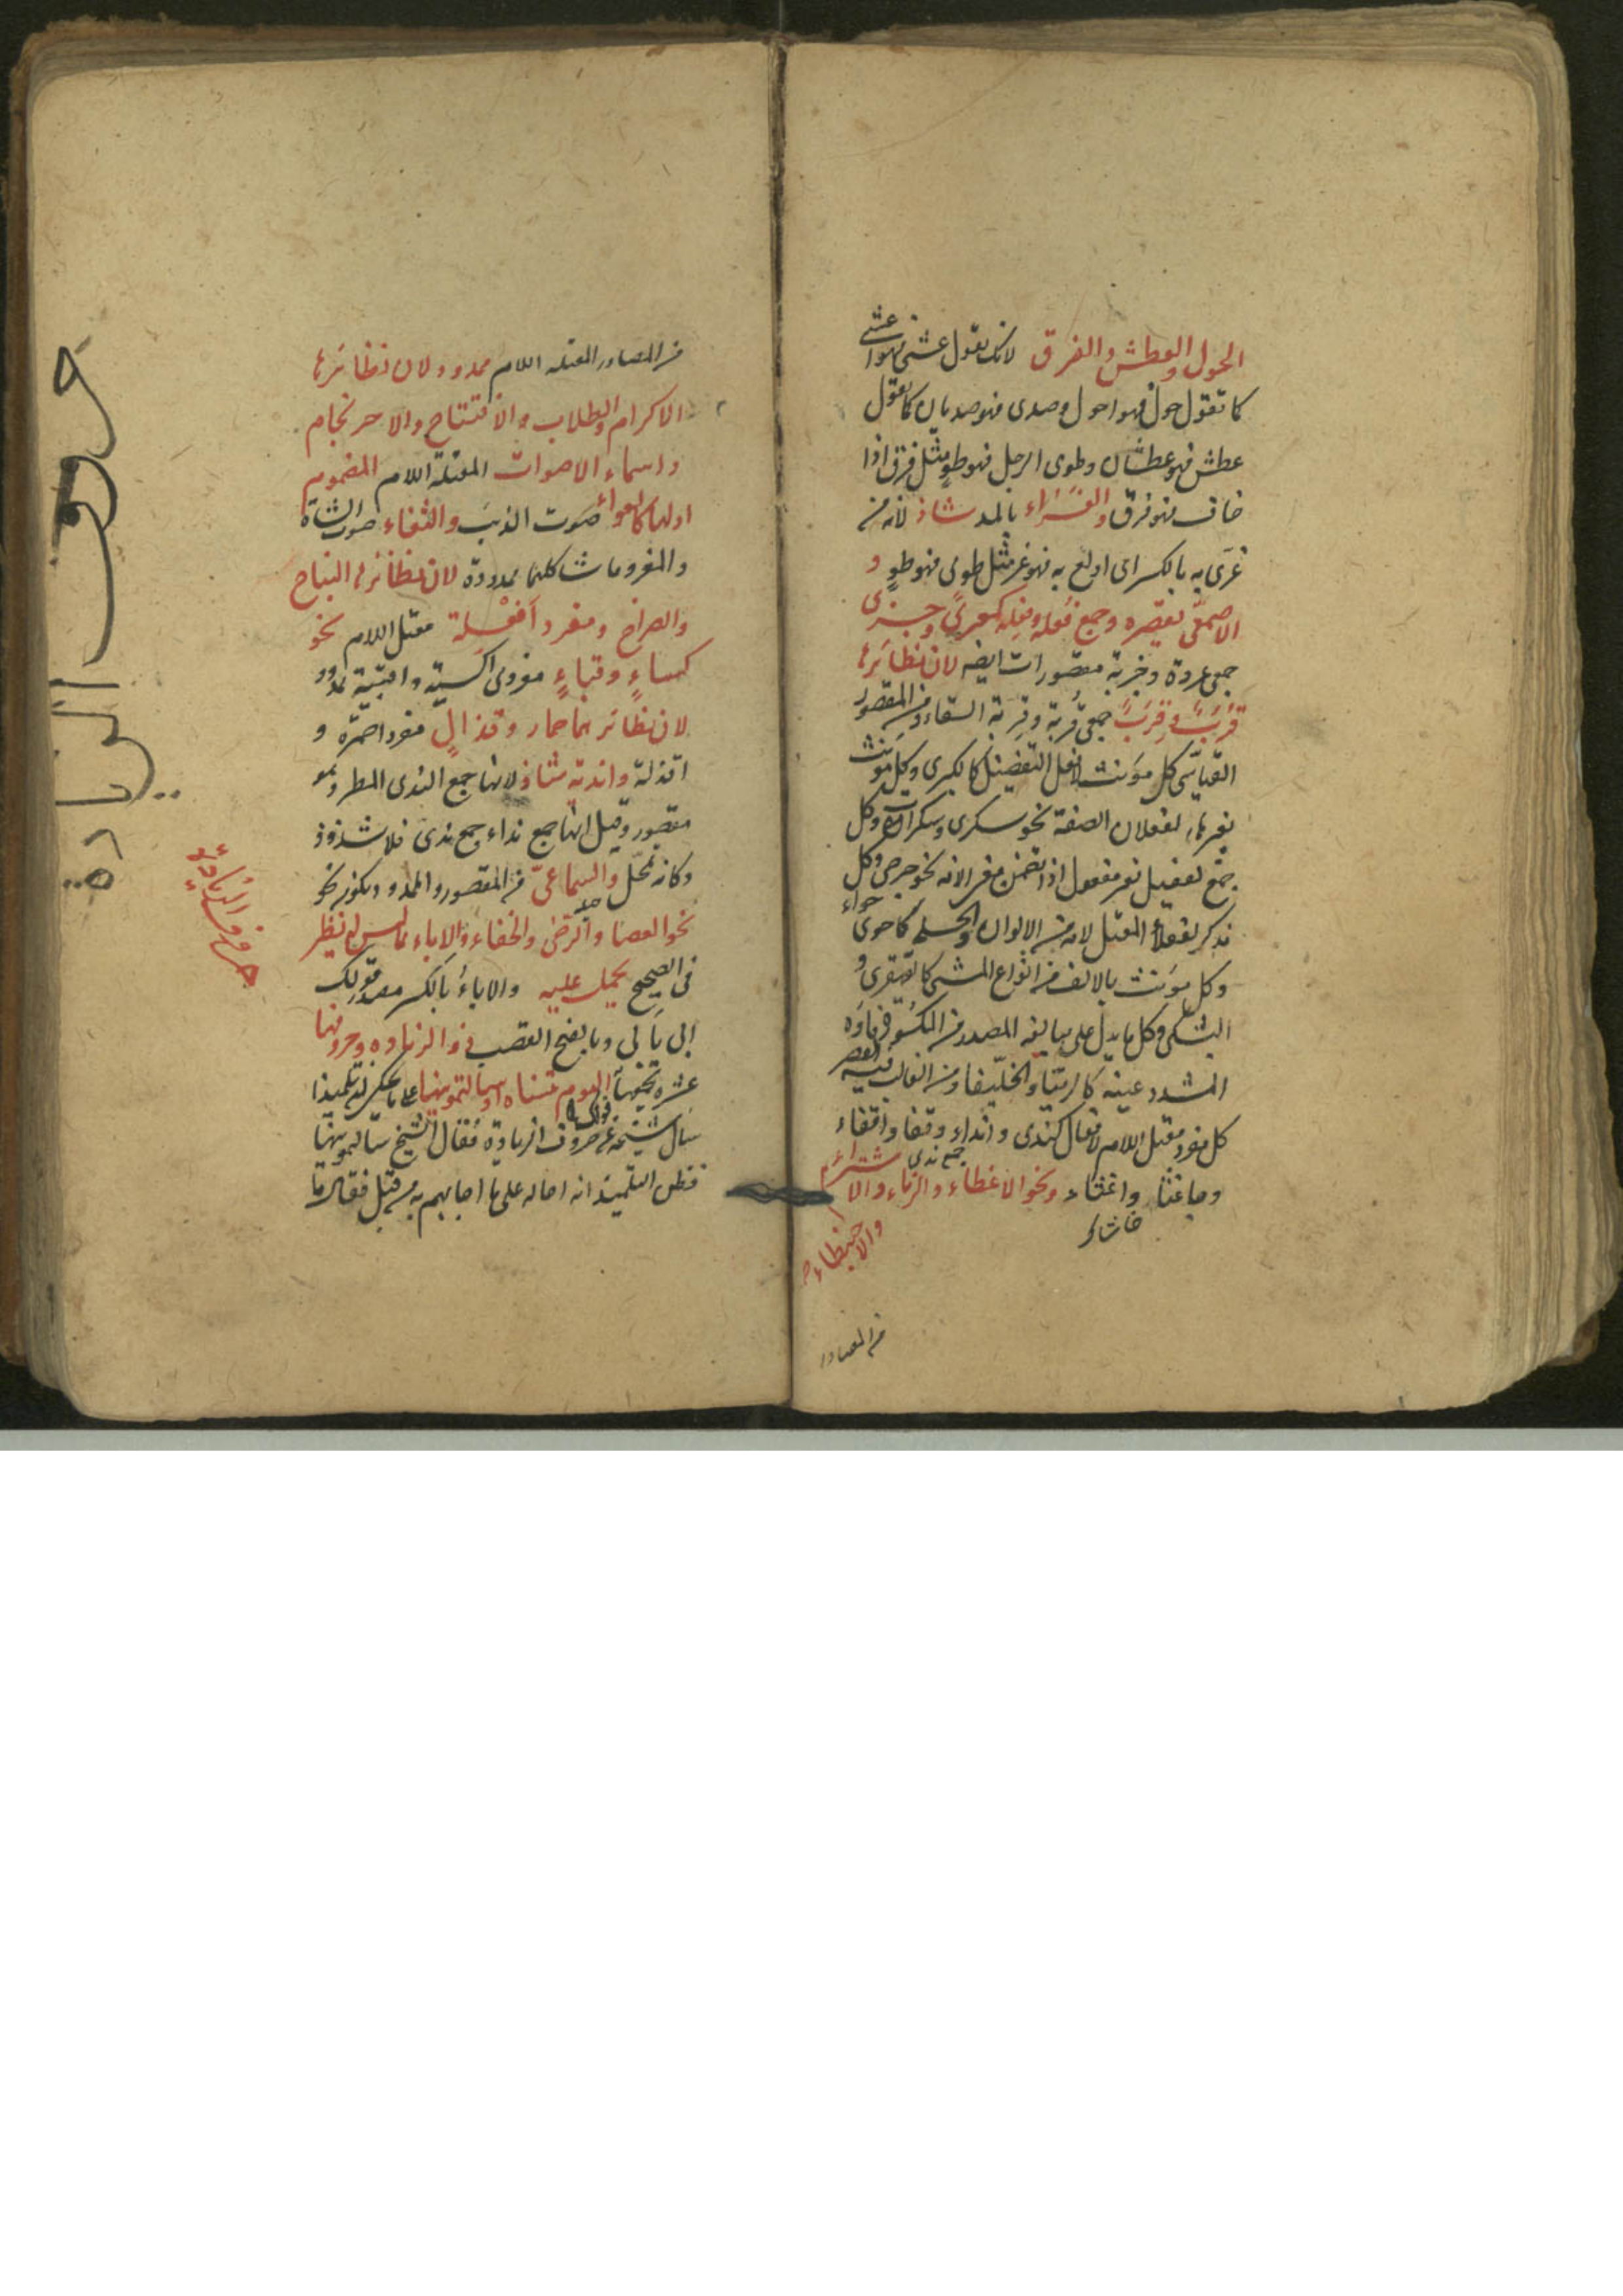 الحول والعطش والفرق لانك تقول عشى فهو اعشى
كما تقول حول فهو احول وصدى فهو صديان كما تقول
عطش فهو عطشان وطوى الرجل فهو طوٍ مثل فرق اذا
خاف فهو فرق والغَرَاء بالمد شاذ لانه من
غرى به بالكسر اى اولع به فهو غرٍ مثل طوى فهو طوٍ و
الاصمعّى يقصره وجمع فُعلة وفِعلة كعرىً وجزى
جمعى عروة وجزية مقصورات ايضه لان نظائرها
قُرَبٌ وقِرَبٌ جمعى قُربة وقِربة السقاء ومن المقصور
القياسّى كل مؤنث لافعل التفضيل كالكبرى وكل مؤنث
بغير هاء لفعلان الصفة نحو سكرى وسكران وكل
جمع لفعيل بمعنى مفعول اذا تضمن معنى الافة نحو جرحى وكل
مذكر لفعلاء المعتل لامه من الالوان والحلى كاحوى حواء
وكل مؤنث بالالف من انواع المشى كالقهقرى و
البشكى وكل ما يدل على مبالغه المصدر من المكسور فاؤه
المشدد عينه كالرمّيا والخلّيفا ومن الغالب فيه القصر
كل مفرد معتل اللام لافعال كندى وانداء وقفا واقفاء
جمع ندى
وجا غثاء واغثاء ونحو الاعطاء والرماء والاشتراء
والاحبنطاء
من المصادر
من المصادر المعتله اللام ممدود لان نظائرها
الاكرام والطلاب والافتتاح والاحرنجام
واسماء الاصوات المعتلة اللام المضموم
اولها كالعواء صوت الذئب والثغاء صوت الشاة
والمغر وما شاكلهما ممدودة لان نظائرها النباح
والصراخ ومفرد اَفْعِلة معتل اللام نحو
كساءٍ وقباءٍ مفردى اكسية واقبية ممدود
لان نظائرهما حمار وقذالٍ مفرد احمرة و
اقذلة واندية شاذ لانها جمع الندى المطر وهو
مقصور وقيل انها جمع نداء جمع ندى فلا شذوذ
وكانه تمحّل والسماعىّ من المقصور والممدود يكون نحو
نحو العصا والرحى والخفاء والاباء مما ليس له نظير
فى الصحيح يحمل عليه والاباءُ بالكسر مصدر قولك
ابى يأبى وبالفتح القصب ذو الزيادة وحروفها
عشرة يجمعها اليوم تنساه او سالتمونيها على ما حكى ان تلميذا
سأل شيخه عن حروف الزيادة فقال الشيخ سالتمونيها
فظن التلميذ انه احاله على ما اجابهم به من قبل فقال ما
حروف الزيادة
حروف الزيادة